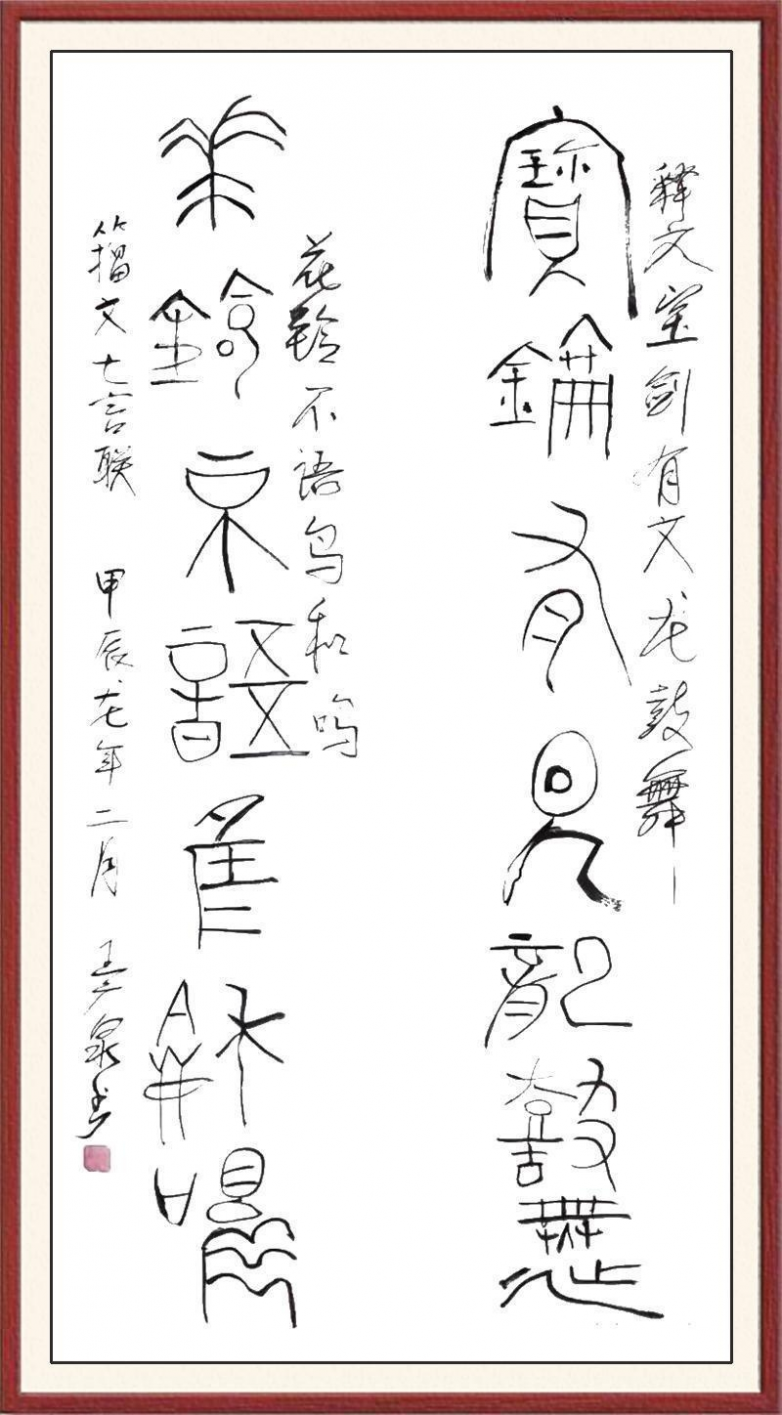 释文宝剑有文龙鼓舞
寶鐱有文龍鼓舞
花铃不语鸟和鸣
華鈴不語隹龢鳴
籀文七言联 甲辰龙年二月 泉书